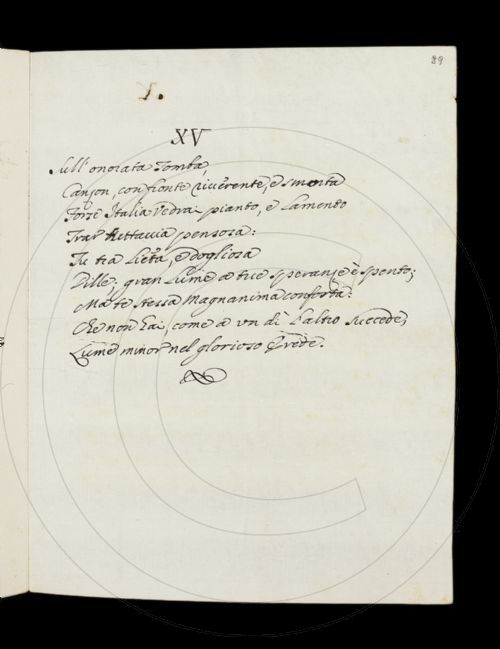 89
XV
Sull'onorata Tomba,
Canzon, con fronte riverente, e smorta
Forse Italia vedrai pianto, e lamento
Trar tuttavia pensosa:
Tu tra lieta, e dogliosa
Dille: gran Lume a tue speranze è spento;
Ma te stessa Magnanima conforta:
Che non hai, come a un dì l'altro succede,
Lume minor nel glorioso Erede.